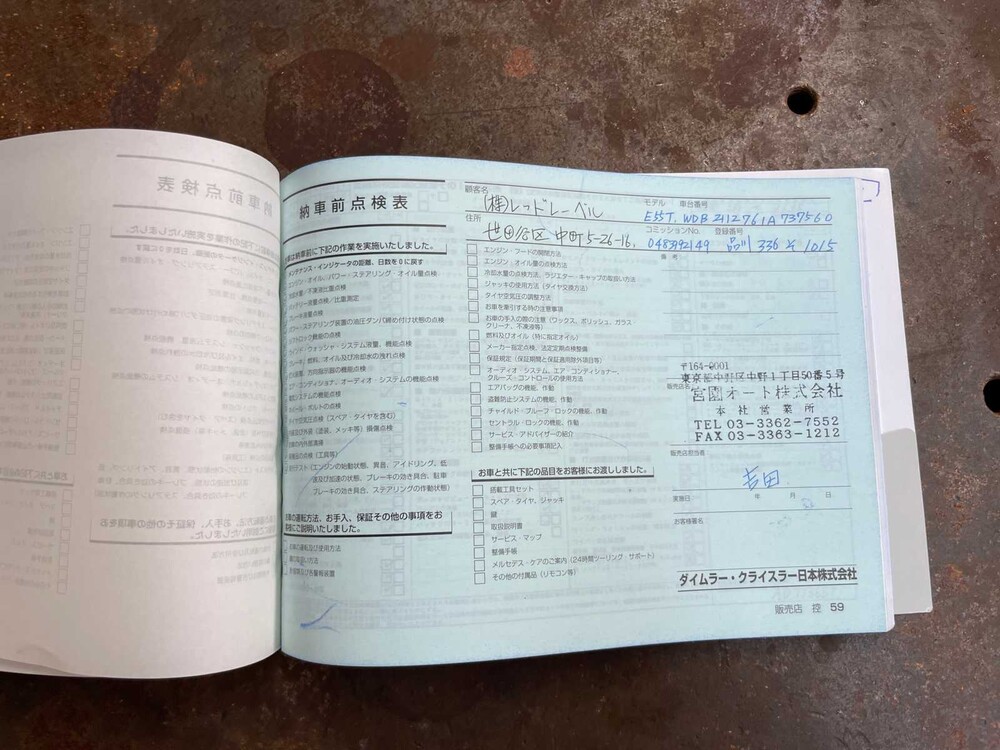 納車前点検表
お車は納車前に下記の作業を実施いたしました。
メンテナンス・インジケータの距離、日数を0に戻す
エンジン・オイル、パワー・ステアリング・オイル量点検
冷却水量／不凍液比重点検
バッテリー液量点検／比重測定
ブレーキ液量点検
パワー・ステアリング装置の油圧ダンパ締め付け状態の点検
シフトロック機能の点検
ウィンドゥ・ウォッシャ・システム液量、機能点検
ブレーキ、燃料、オイル及び冷却水の洩れ点検
灯火装置、方向指示器の機能点検
エア・コンディショナ、オーディオ・システムの機能点検
電装システムの機能点検
ホイール・ボルトの点検
タイヤ空気圧点検（スペア・タイヤを含む）
内装及び外装（塗装、メッキ等）損傷点検
お車の内外部清掃
付属品の点検（工具等）
路上テスト（エンジンの始動状態、異音、アイドリング、低
速及び加速の状態、ブレーキの効き具合、駐車
ブレーキの効き具合、ステアリングの作動状態）
お車の運転方法、お手入、保証その他の事項をお
客様にご説明いたしました。
お車の運転及び使用方法
鍵の取扱い方法
計器類及び各警報装置
顧客名
(株)レッドレーベル
住所
世田谷区中町5-26-16,
モデル 車台番号
E55T. WDB2112761A737560
コミッションNo. 登録番号
048392149 品川 336 そ 1015
備考
エンジン・フードの開閉方法
エンジン・オイル量の点検方法
冷却水量の点検方法、ラジエター・キャップの取扱い方法
ジャッキの使用方法（タイヤ交換方法）
タイヤ空気圧の調整方法
お車を牽引する時の注意事項
お車の手入の際の注意（ワックス、ポリッシュ、ガラス
クリーナ、不凍液等）
燃料及びオイル（特に指定オイル）
メーカー指定点検、法定定期点検整備
保証規定（保証期間と保証適用除外項目等）
オーディオ・システム、エア・コンディショナー、
クルーズ・コントロールの使用方法
エアバッグの機能、作動
盗難防止システムの機能、作動
チャイルド・プルーフ・ロックの機能、作動
セントラル・ロックの機能、作動
サービス・アドバイザーの紹介
整備手帳への必要事項記入
お車と共に下記の品目をお客様にお渡ししました。
搭載工具セット
スペア・タイヤ、ジャッキ
鍵
取扱説明書
サービス・マップ
整備手帳
メルセデス・ケアのご案内（24時間ツーリング・サポート）
その他の付属品（リモコン等）
〒164-0001
東京都中野区中野1丁目50番5号
販売店名
宮園オート株式会社
本社営業所
TEL 03-3362-7552
FAX 03-3363-1212
販売店担当者
吉田
実施日 年 月 日
お客様署名
ダイムラー・クライスラー日本株式会社
販売店 控 59